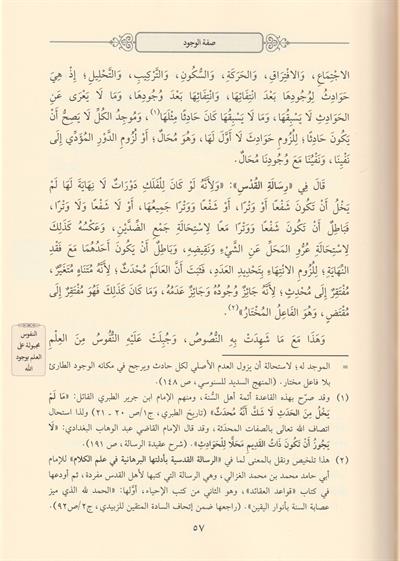 صفة الوجود
الاجْتِمَاعِ، وَالافْتِرَاقِ، وَالحَرَكَةِ، وَالسُّكُونِ، وَالتَّرْكِيبِ، وَالتَّحْلِيلِ؛ إِذْ هِيَ
حَوَادِثُ لِوُجُودِهَا بَعْدَ انْتِفَائِهَا، وَانْتِفَائِهَا بَعْدَ وُجُودِهَا، وَمَا لَا يَعْرَى عَنِ
الحَوَادِثِ لَا يَسْبِقُهَا، وَمَا لَا يَسْبِقُهَا كَانَ حَادِثًا مِثْلَهَا(١)، وَمُوجِدُ الكُلِّ لَا يَصِحُّ أَنْ
يَكُونَ حَادِثًا؛ لِلُزُومِ حَوَادِثَ لَا أَوَّلَ لَهَا، وَهُوَ مُحَالٌ؛ أَوْ لُزُومِ الدَّوْرِ المُؤَدِّي إِلَى
نَفْيِنَا، وَنَفْيُنَا مَعَ وُجُودِنَا مُحَالٌ.
قَالَ فِي «رِسَالَةِ القُدْسِ»: «وَلِأَنَّهُ لَوْ كَانَ لِلْفَلَكِ دَوْرَاتٌ لَا نِهَايَةَ لَهَا لَمْ
يَخْلُ أَنْ تَكُونَ شَفْعًا أَوْ وَتْرًا، أَوْ شَفْعًا وَوَتْرًا جَمِيعُهَا، أَوْ لَا شَفْعًا وَلَا وَتْرًا،
فَبَاطِلٌ أَنْ تَكُونَ شَفْعًا وَوَتْرًا مَعًا لِاسْتِحَالَةِ جَمْعِ الضِّدَّيْنِ، وَعَكْسُهُ كَذَلِكَ
لِاسْتِحَالَةِ عُرُوِّ المَحَلِّ عَنِ الشَّيْءِ وَنَقِيضِهِ، وَبَاطِلٌ أَنْ يَكُونَ أَحَدُهُمَا مَعَ فَقْدِ
النِّهَايَةِ؛ لِلُزُومِ الانْتِهَاءِ بِتَحْدِيدِ العَدَدِ، فَثَبَتَ أَنَّ العَالَمَ مُحْدَثٌ؛ لِأَنَّهُ مُتَنَاهٍ مُتَغَيِّرٌ،
مُفْتَقِرٌ إِلَى مُحْدِثٍ؛ لِأَنَّهُ جَائِزٌ وُجُودُهُ وَجَائِزٌ عَدَمُهُ، وَمَا كَانَ كَذَلِكَ فَهُوَ مُفْتَقِرٌ إِلَى
مُقْتَضٍ، وَهُوَ الفَاعِلُ المُخْتَارُ»(٢).
وَهَذَا مَعَ مَا شَهِدَتْ بِهِ النُّصُوصُ، وَجُبِلَتْ عَلَيْهِ النُّفُوسُ مِنَ العِلْمِ
النفوس
مجبولة على
العلم بوجود
الله
= الموجد له؛ لاستحالة أن يزول العدم الأصلي لكل حادث ويرجح في مكانه الوجود الطارئ
بلا فاعل مختار. (المنهج السديد للسنوسي، ص ١٤٨).
(١) وقد صرّح بهذه القاعدة أئمة أهل السُّنة، ومنهم الإمام ابن جرير الطبري القائل: «مَا لَمْ
يَخْلُ مِنَ الحَدَثِ لَا شَكَّ أَنَّهُ مُحْدَثٌ» (تاريخ الطبري، ج١/ص ٢٠ - ٢١) ولذا استحال
اتصاف الله تعالى بالصفات المحدثة، وقد قال الإمام القاضي عبد الوهاب البغدادي: «لَا
يَجُوزُ أَنْ تَكُونَ ذَاتُ القَدِيمِ مَحَلًّا لِلْحَوَادِثِ». (شرح عقيدة الرسالة، ص ١٩١).
(٢) هذا تلخيص ونقل بالمعنى لما في «الرسالة القدسية بأدلتها البرهانية في علم الكلام» للإمام
أبي حامد محمد بن محمد الغزالي، وهي الرسالة التي كتبها لأهل القدس مفردة، ثم أودعها
في كتاب «قواعد العقائد»، وهو الثاني من كتب الإحياء، أوّلها: «الحمد لله الذي ميز
عصابة السنة بأنوار اليقين». (راجعها ضمن إتحاف السادة المتقين للزبيدي، ج٢/ص٩٢).
٥٧